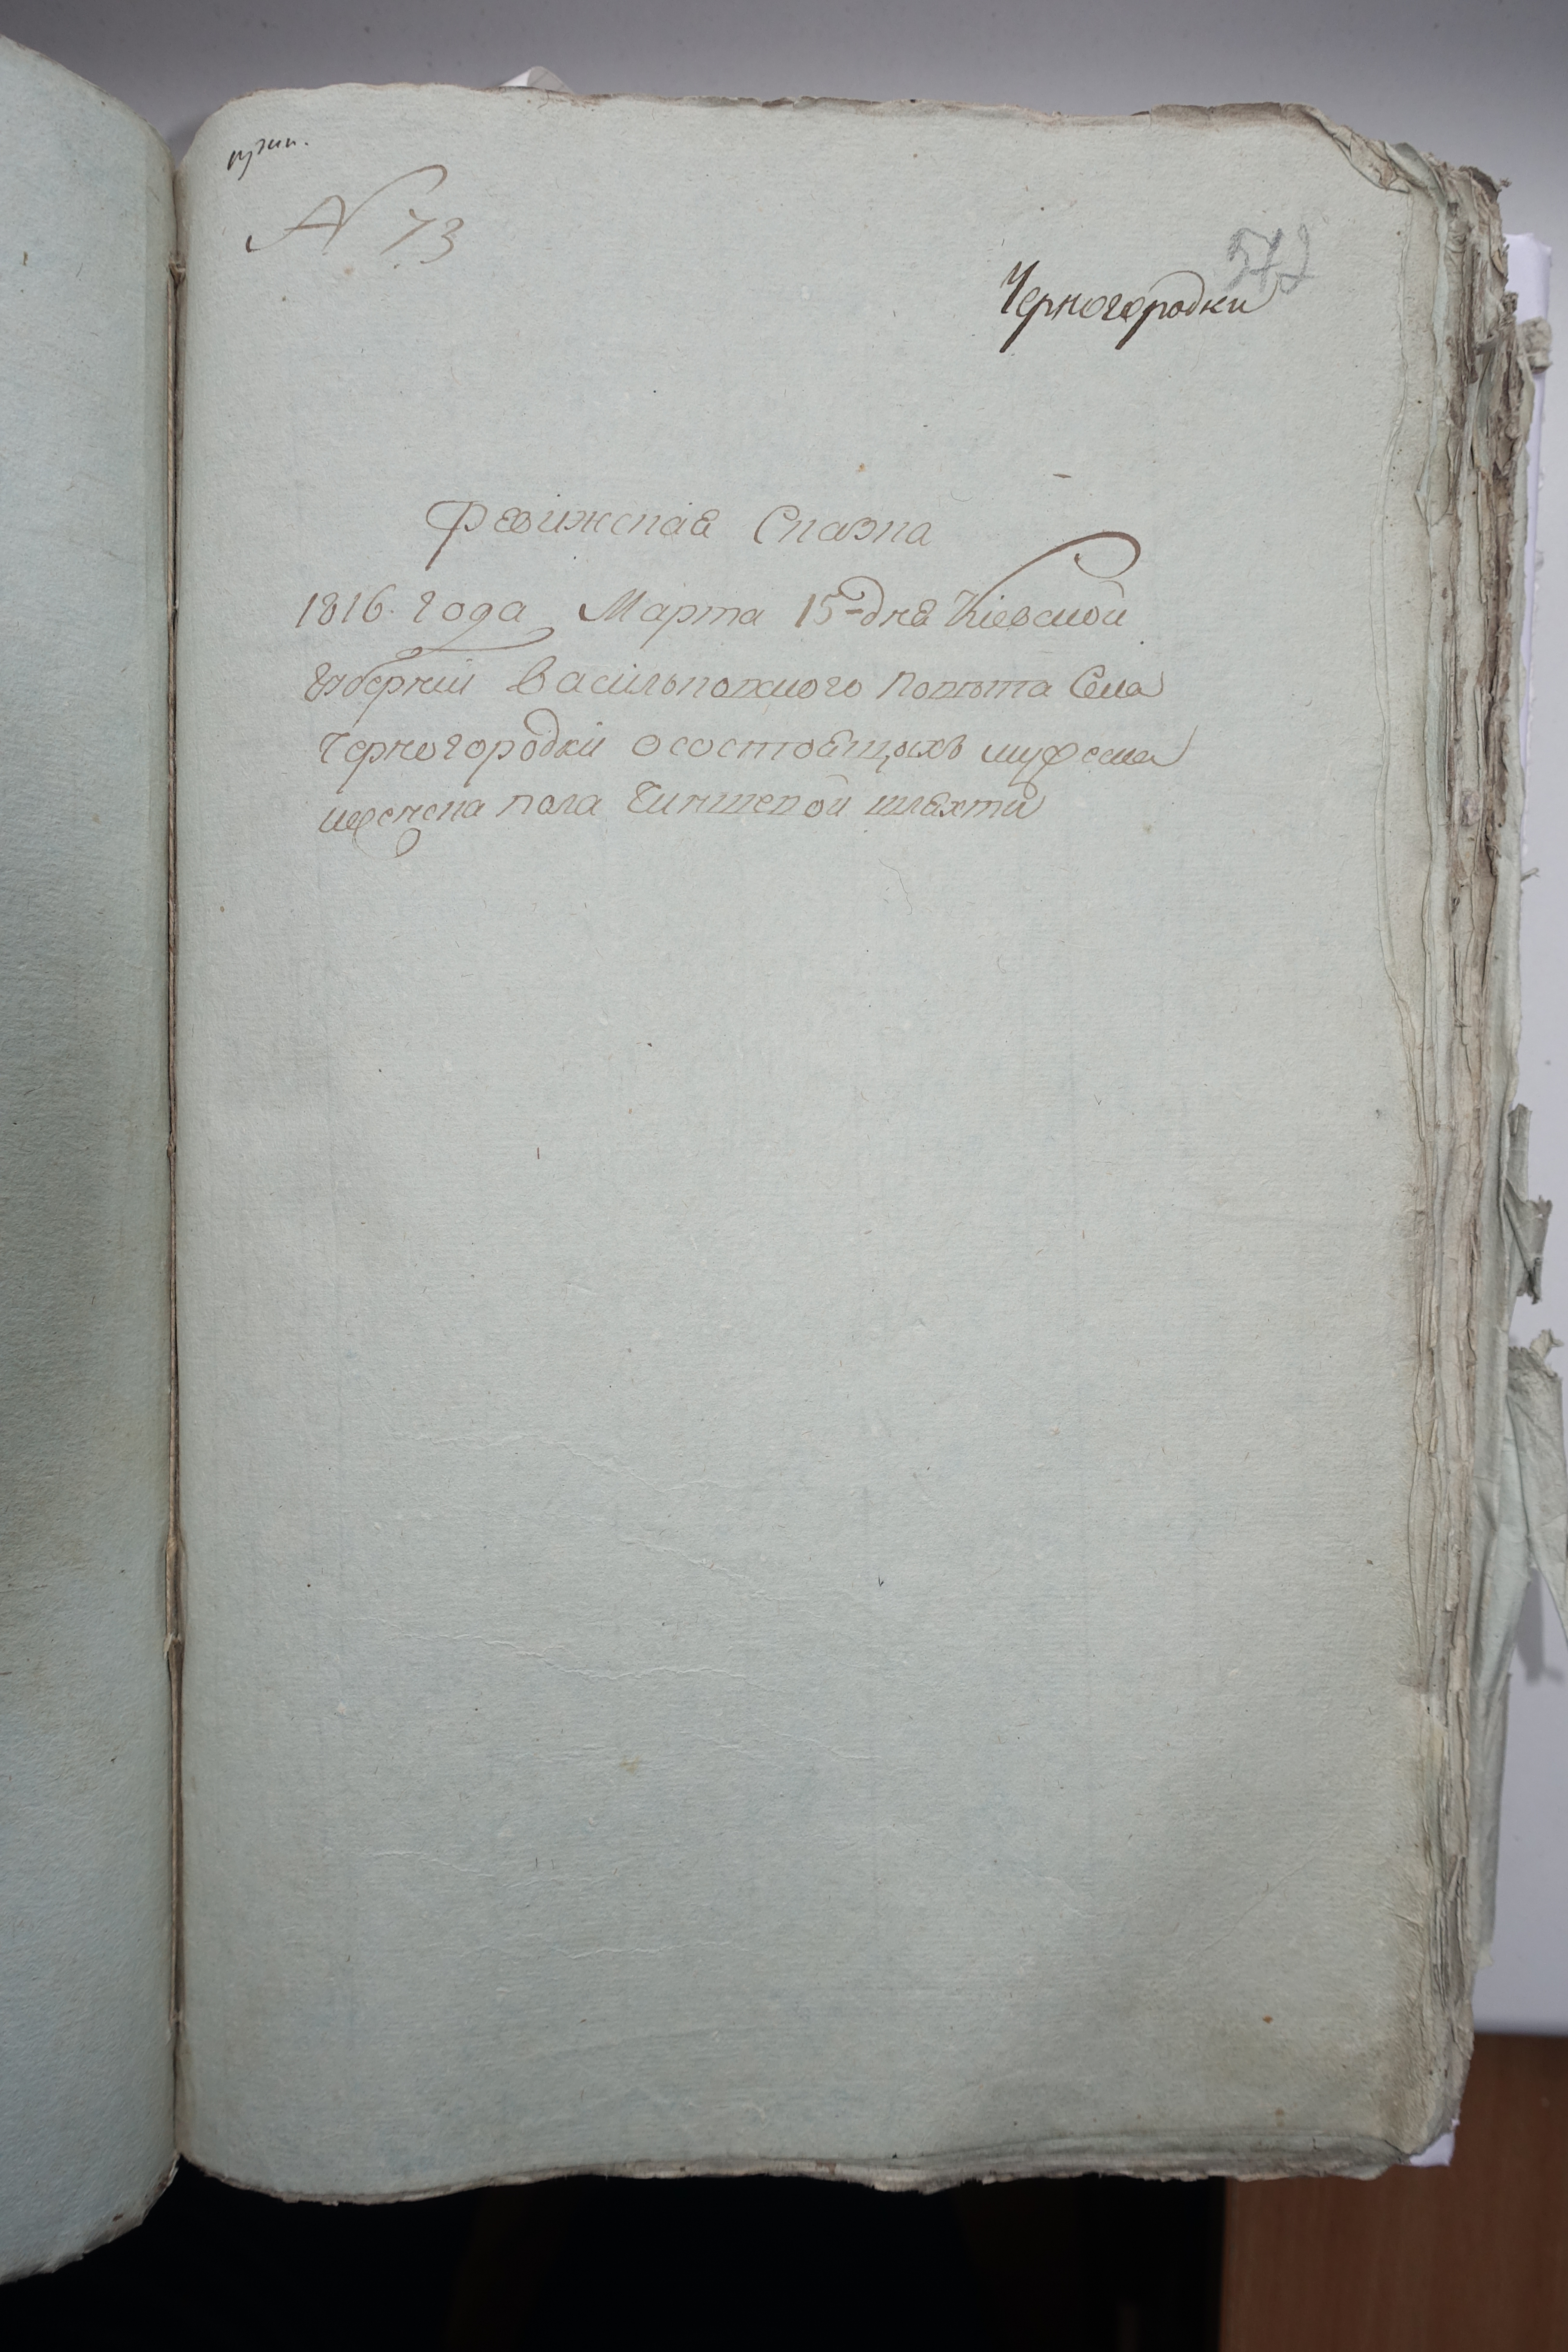 N 73
572
Черногородки
Ревижская Сказка
1816. года Марта 15-дня Кіевской
Губерніи Васильковского Повѣта Села
Черногородки о состоящихъ мужеска
и женска пола Чиншевой шляхти